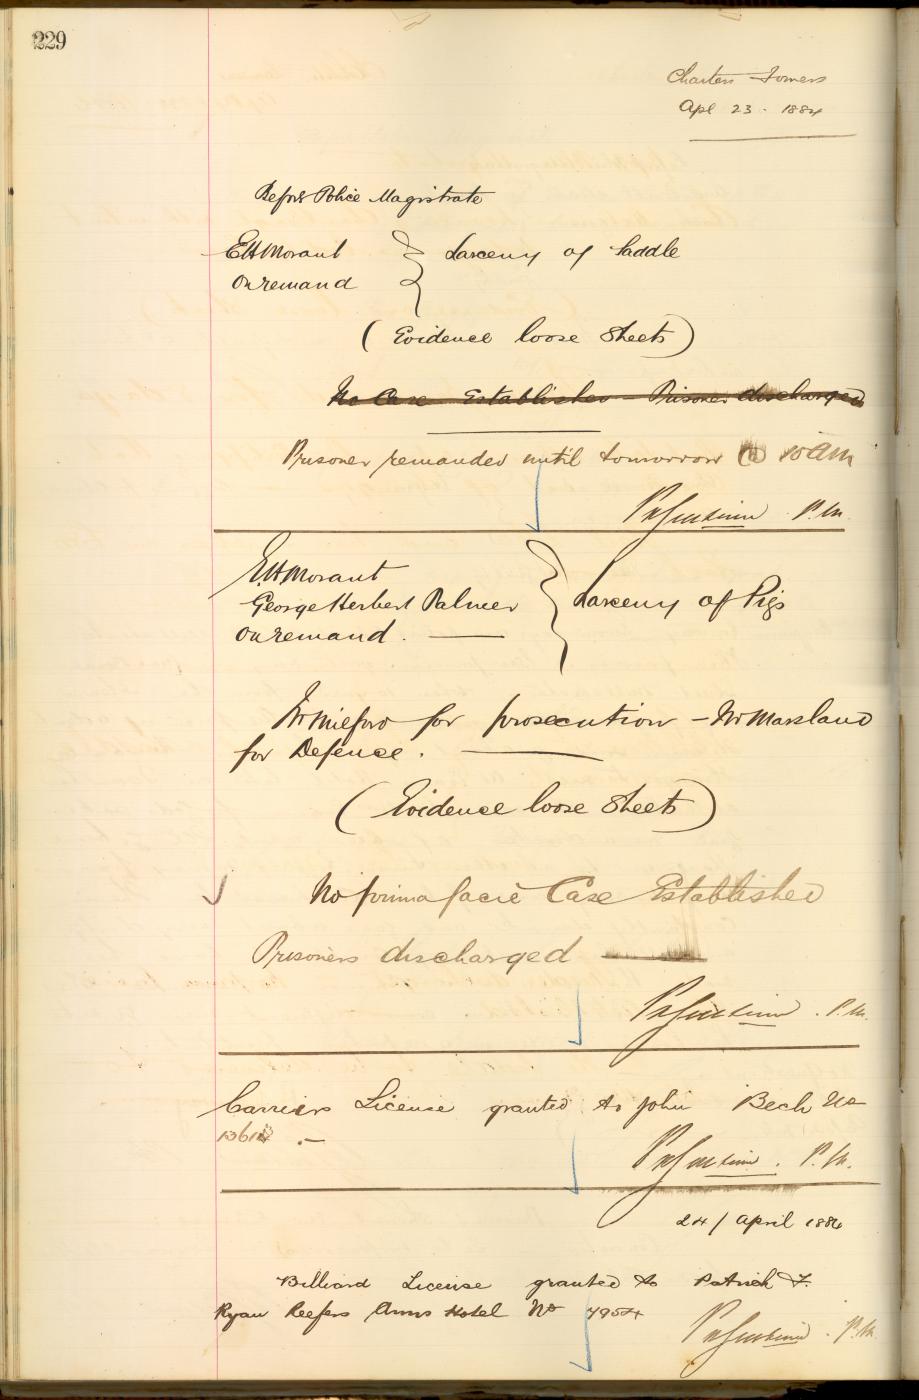 229
Charters Towers
Apl 23 - 1884
Before Police Magistrate
E H Morant } Larceny of Saddle
On remand
( Evidence loose Sheets )
No Case Established - Prisoner discharged
Prisoner remanded until tomorrow @ 10 AM
P.M.
E. H Morant
George Herbert Palmer } Larceny of Pigs
On remand. —
Mr Milford for prosecution - Mr Marsland
for Defence. —
( Evidence loose Sheets )
No prima facie Case Established
Prisoners discharged —
P.M.
Carriers License granted to John Beck No
P.M.
24 / April 1884
Billiard License granted to Patrick F.
Ryan Reefers Arms Hotel No 7954
P.M.